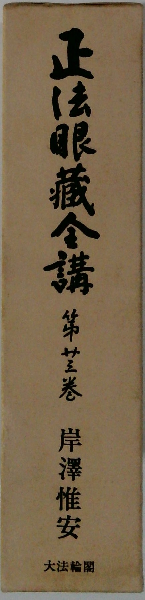 正法眼藏全講
第廿三巻
岸澤惟安
大法輪閣